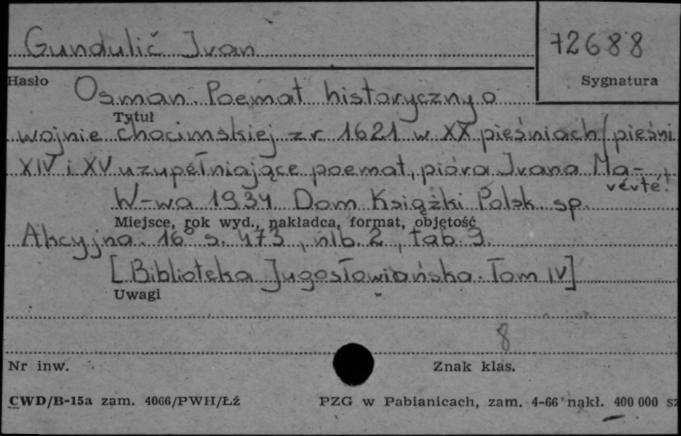 Gundulić Ivan
72688
Hasło
Sygnatura
Osman. Poemat historyczny o
Tytuł
wojnie chocimskiej z r. 1621 w XX pieśniach/pieśni
XIV i XV uzupełniające poemat, pióra Ivana Ma-
verte!
W-wa 1934 Dom Książki Polsk sp.
Miejsce, rok wyd., nakładca, format, objętość
Akcyjna. 16° s. 473, nlb. 2, tab 3.
[Biblioteka Jugosłowiańska. Tom IV]
Uwagi
8
Nr inw.
Znak klas.
CWD/B-15a zam. 4066/PWH/Łż
PZG w Pabianicach, zam. 4-66 nakł. 400 000 sz